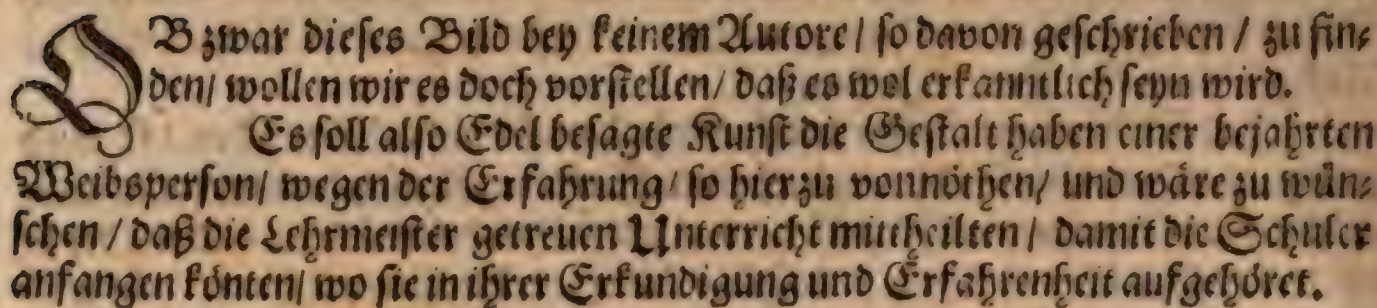 OB zwar dieses Bild bey keinem Autore / so davon geschrieben / zu fin-
den / wollen wir es doch vorstellen / daß es wol erkanntlich seyn wird.
Es soll also Edel besagte Kunst die Gestalt haben einer bejahrten
Weibsperson / wegen der Erfahrung / so hierzu vonnöthen / und wäre zu wün-
schen / daß die Lehrmeister getreuen Unterricht mittheilten / damit die Schuler
anfangen könten / wo sie in ihrer Erkundigung und Erfahrenheit aufgehöret.